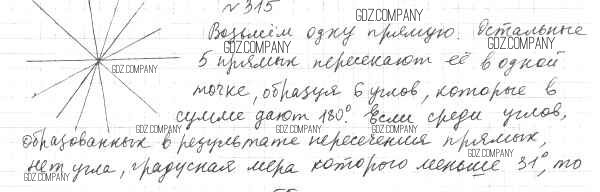 №315
GDZ.COMPANY
Возьмём одну прямую. Остальные
GDZ.COMPANY GDZ.COMPANY
5 прямых пересекают её в одной
GDZ.COMPANY
точке, образуя 6 углов, которые в
сумме дают 180°. Если среди углов,
GDZ.COMPANY GDZ.COMPANY GDZ.COMPANY
образованных в результате пересечения прямых,
GDZ.COMPANY
нет угла, градусная мера которого меньше 31°, то
GDZ.COMPANY